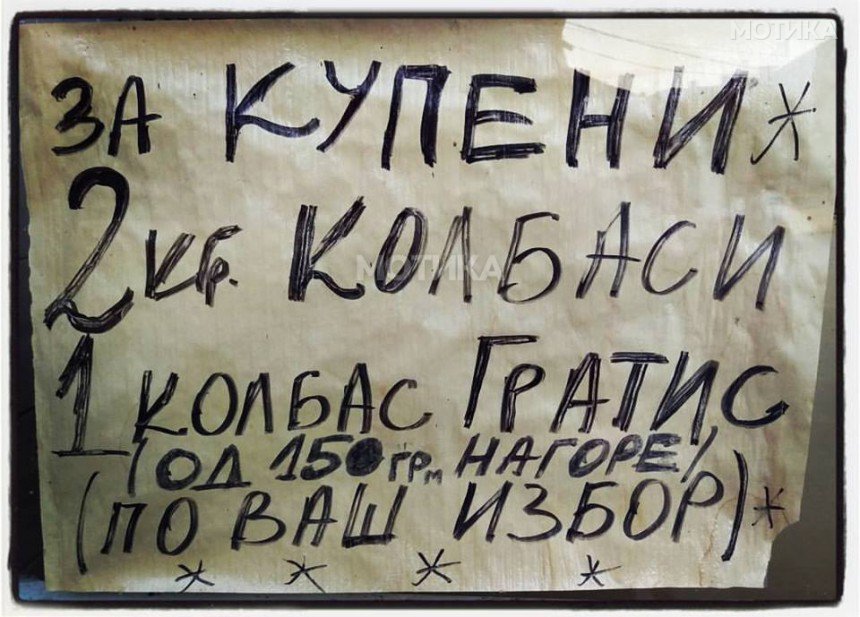 МОТИКА
ЗА КУПЕНИ*
2 кг. КОЛБАСИ
МОТИКА
1 КОЛБАС ГРАТИС
/ОД 150 грм НАГОРЕ/
(ПО ВАШ ИЗБОР)*
* * * *
МОТИКА